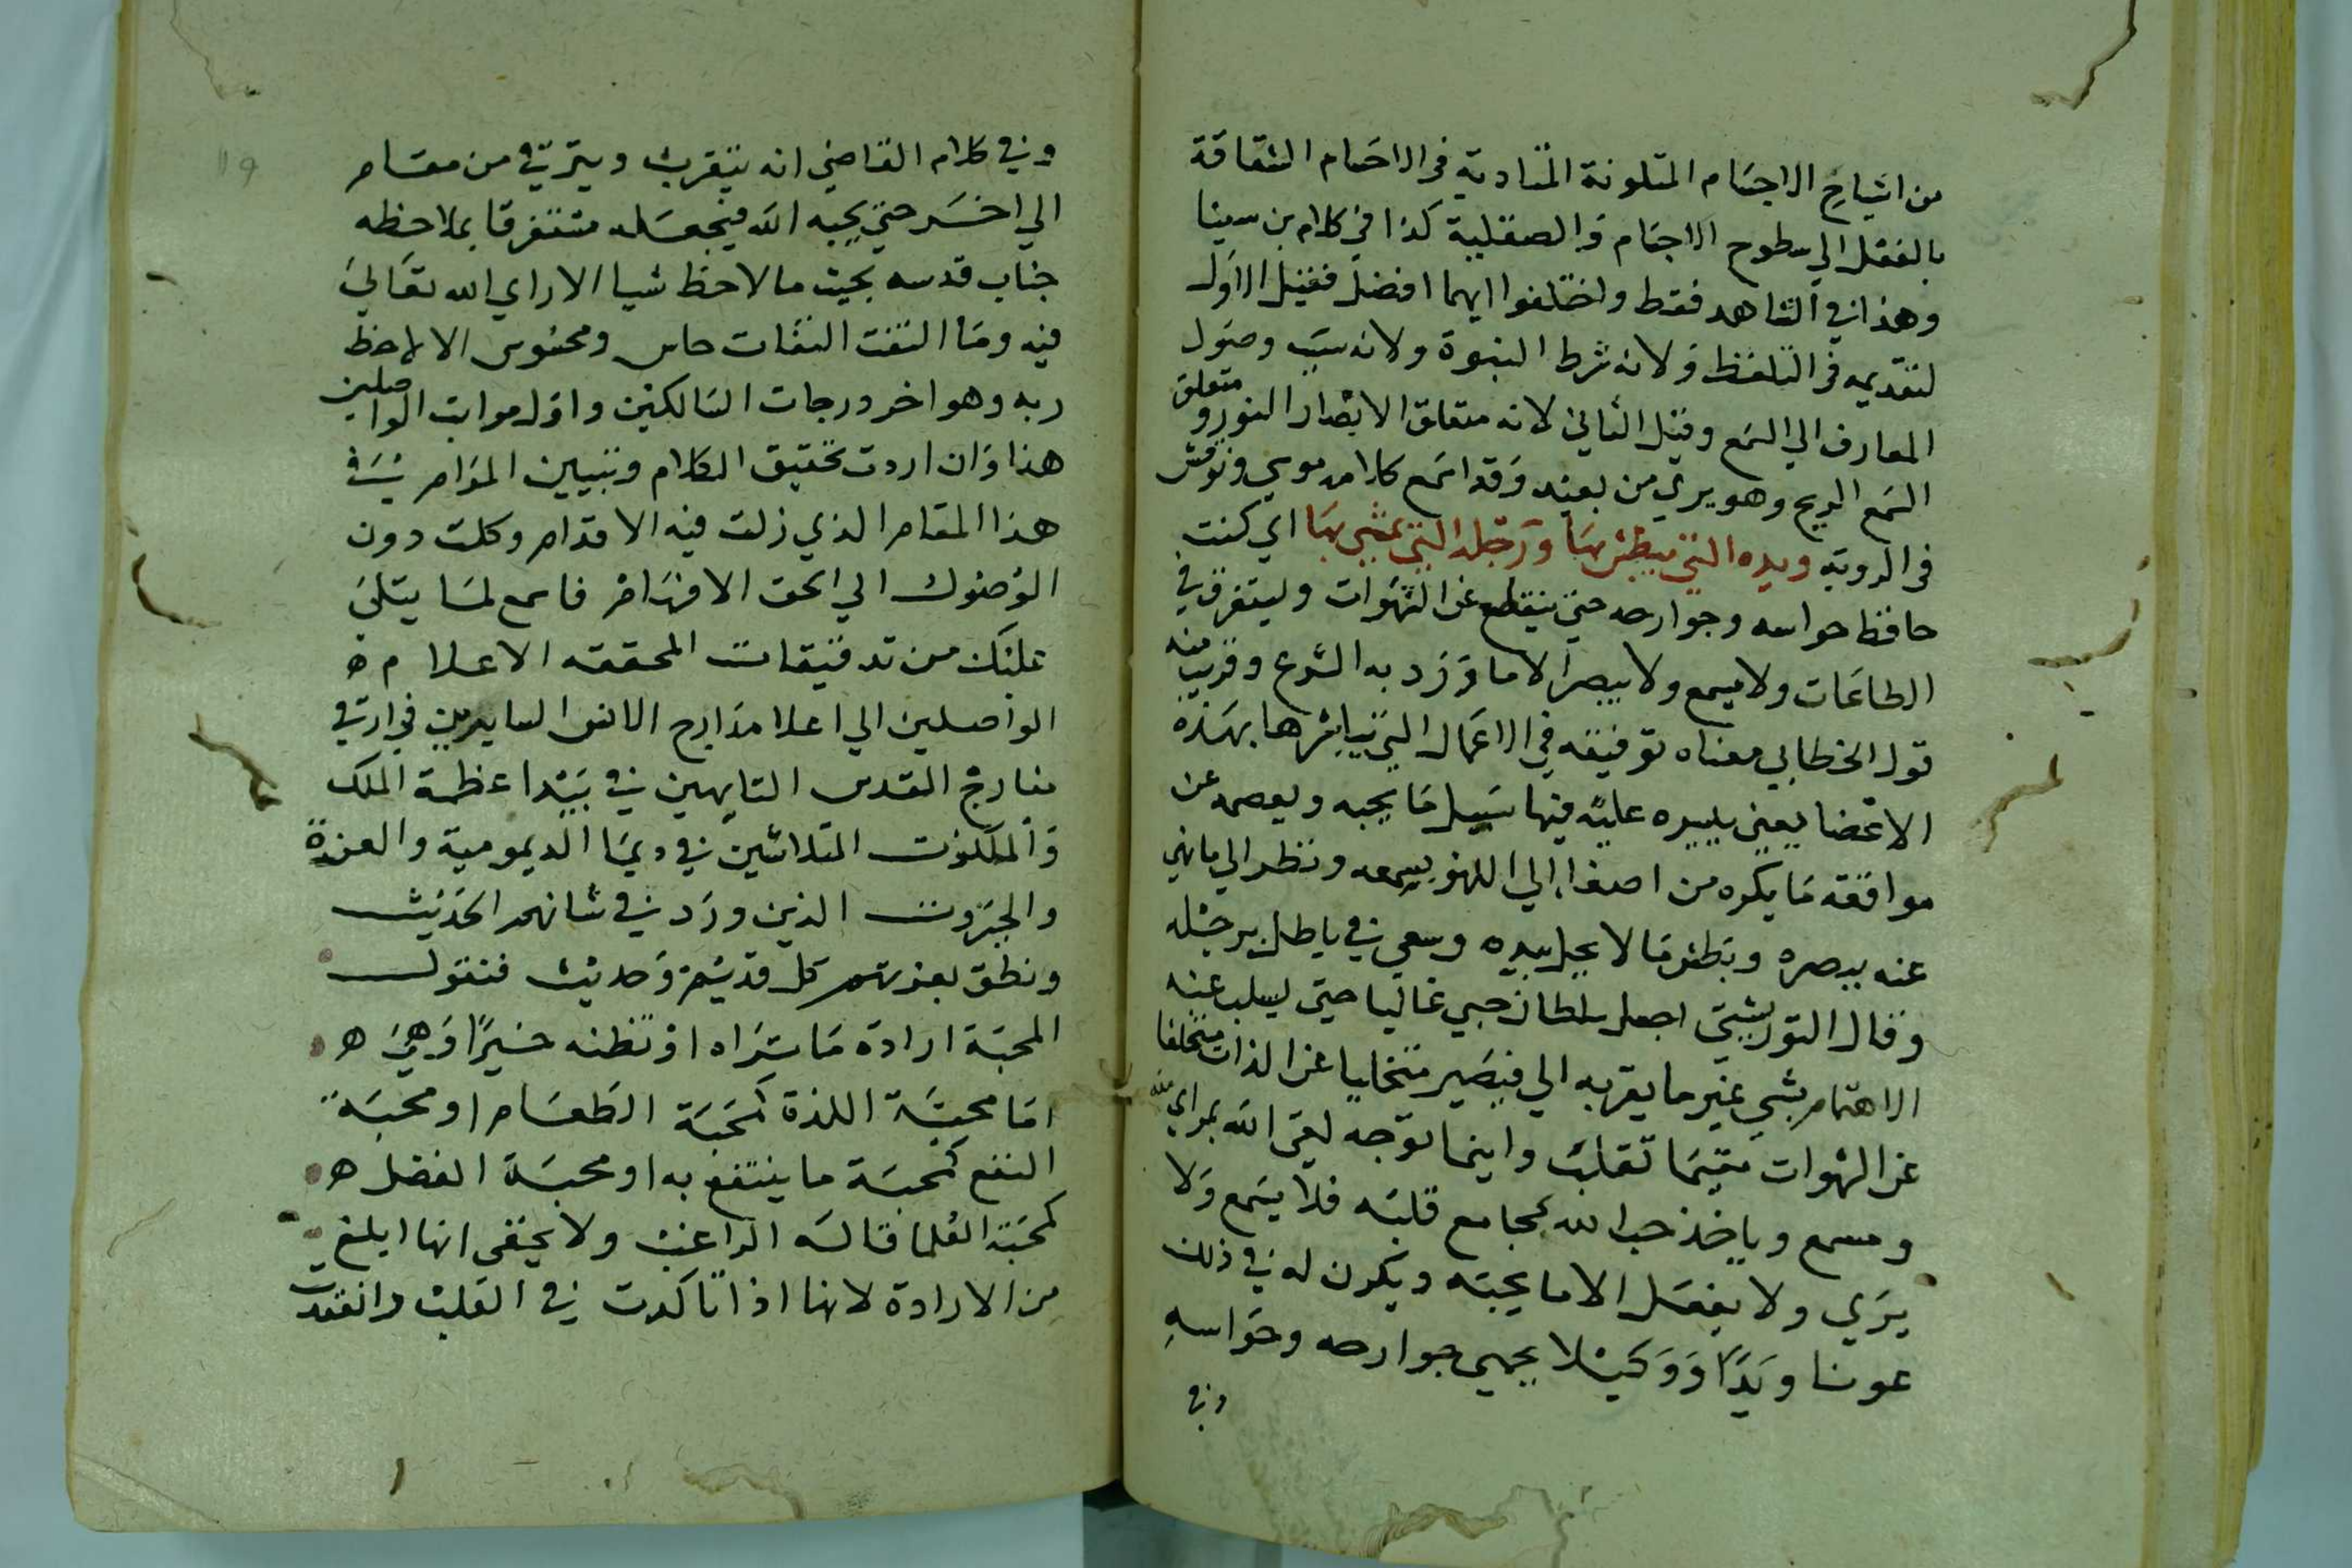 من اشباح الاجسام المتلونة المتادية في الاجسام الشفافة
بالفعل الي سطوح الاجسام والصقلية كذا في كلام بن سينا
وهذا في الشاهد فقط واختلفوا ايهما افضل فقيل الاول
لتقديمه في التلفظ ولانه شرط النبوة ولانه سبب وصول
المعارف الي السمع وقيل الثاني لانه متعلق الابصار النور ومتعلق
السمع الريح وهو يري من بعيد وقد اسمع كلامه موسي ونوقش
في الرويه ويده التي يبطش بها ورجله التي يمشي بها اي كنت
حافظ حواسه وجوارحه حتي ينقطع عن الشهوات وليتغرق في
الطاعات ولا يسمع ولا يبصر الا ما ورد به الشرع وقريب منه
قول الخطابي معناه توفيقه في الاعمال التي يباشرها بهذه
الاعضا يعني ييسره عليه فيها سبيل ما يحبه ويعصمه عن
موافقه ما يكره من اصغاء الي اللهو بسمعه ونظر الي ما نهي
عنه ببصره وبطش ما لا يحل بيده وسعي في باطل برجله
وقال التوربشتي اجعل سلطان حبي غالبا حتي يسلب عنه
الاهتمام بشي غير ما يقربه الي فيصير متخليا عن اللذات متخلفا
عن الشهوات متيما تقلب واينما توجه لقي الله بمراي لله
ومسمع وياخذ حب الله بمجامع قلبه فلا يسمع ولا
يري ولا يفعل الا ما يحبه ويكون له في ذلك
عونا ويدا ووكيلا يحمي جوارحه وحواسه
وفي
١١٩
وفي كلام القاضي انه يتقرب ويترقي من مقام
الي اخر حتي يحبه الله فيجعله مستغرقا بملاحظه
جناب قدسه بحيث ما لاحظ شيا الا راي الله تعالي
فيه وما التفت التفات حاس ومحسوس الا لاحظ
ربه وهو اخر درجات السالكين واول مراتب الواصلين
هذا وان اردت تحقيق الكلام وتبيين المرام في
هذا المقام الذي زلت فيه الاقدام وكلت دون
الوصول الي الحق الافهام فاسمع لما يتلي
عليك من تدقيقات المحققه الاعلام ه
الواصلين الي اعلا مدارج الانس السايرين في ارتقي
معارج القدس التايهين في بيدا عظمة الملك
والملكوت المتلاشين في ديما الديمومية والعزة
والجبروت الذين ورد في شانهم الحديث
ونطق بعزتهم كل قديم وحديث فنقول
المحبة ارادة ما تراه او تظنه خيرا وهي ه
اما محبة اللذة كمحبة الطعام او محبة
النفع كمحبة ما ينتفع به او محبة الفضل ه
كمحبة العلما قاله الراغب ولا يخفي انها ابلغ
من الارادة لانها اذا تاكدت في القلب وانعقدت